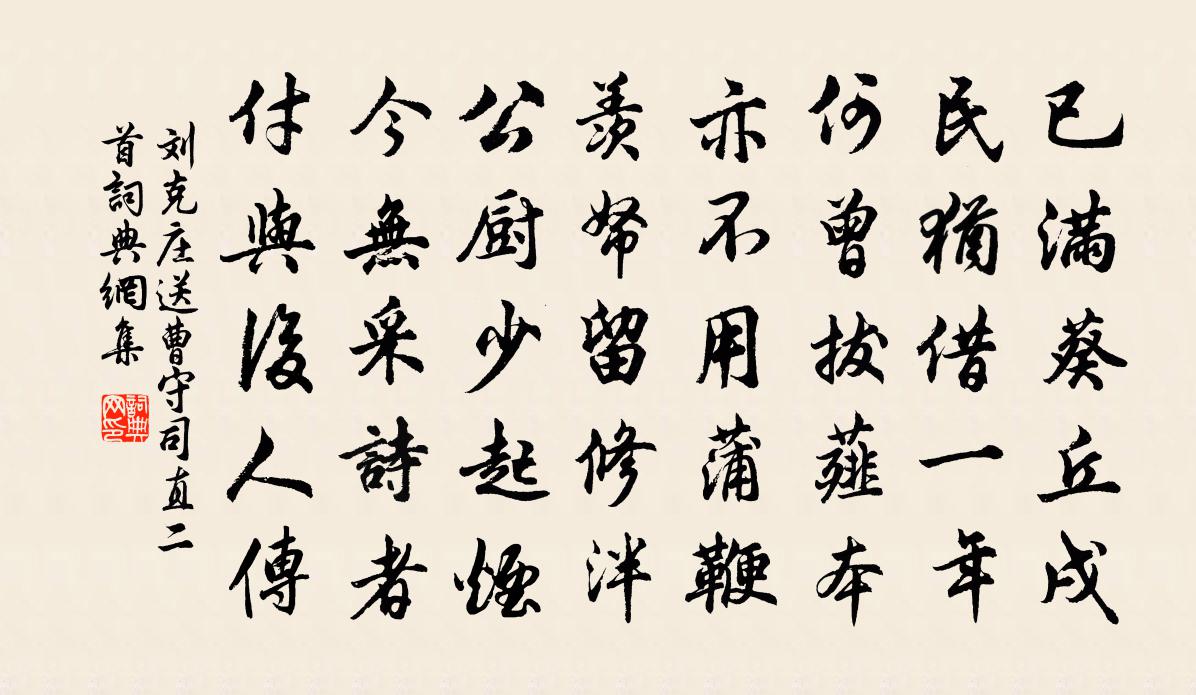 已滿葵丘戍
民猶借一年
何曾拔薤本
亦不用蒲鞭
羨帑留修泮
公厨少起煙
今無采詩者
付與後人傳
刘克庄送曹守司直二
首詞典網集
詞典网印